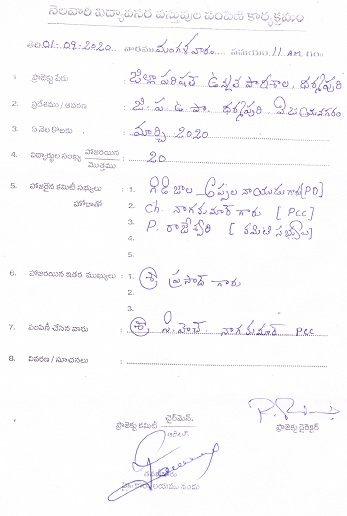 నెలవారి విద్యావసర వస్తువుల పంపిణి కార్యక్రమం
తేది 01-09-2020 వారము మంగళవారం సమయం 11 AM గం॥
1. ప్రాజెక్టు పేరు : జిల్లా పరిషత్ ఉన్నత పాఠశాల, ధర్మపురి
2. ప్రదేశము / ఆవరణ : జి. ప. ఉ. పా. ధర్మపురి విజయనగరం
3. ఏ నెల కొరకు : మార్చి 2020
4. విద్యార్థుల సంఖ్య హాజరయిన / మొత్తము : 20
5. హాజరైన కమిటీ సభ్యులు : 1. గిడిజాల అప్పల నాయుడు గారు [PD]
హోదాతో 2. Ch. నాగకుమార్ గారు [PCC]
3. P. రాజేశ్వరి [కమిటి సభ్యులు]
4.
5.
6. హాజరయిన ఇతర ముఖ్యులు : 1. శ్రీ ప్రసాద్ గారు
2.
3.
7. పంపిణీ చేసిన వారు : శ్రీ సి. హెచ్ నాగకుమార్ PCC
8. వివరణ / సూచనలు :
ప్రాజెక్టు కమిటీ ఛైర్మెన్. ప్రాజెక్టు డైరెక్టర్